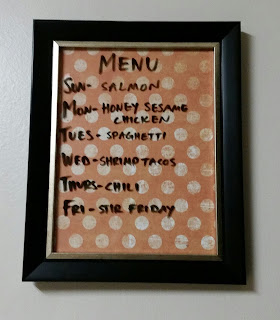 MENU
SUN- SALMON
MON- HONEY SESAME
CHICKEN
TUES- SPAGHETTI
WED- SHRIMP TACOS
THURS- CHILI
FRI- STIR FRIDAY